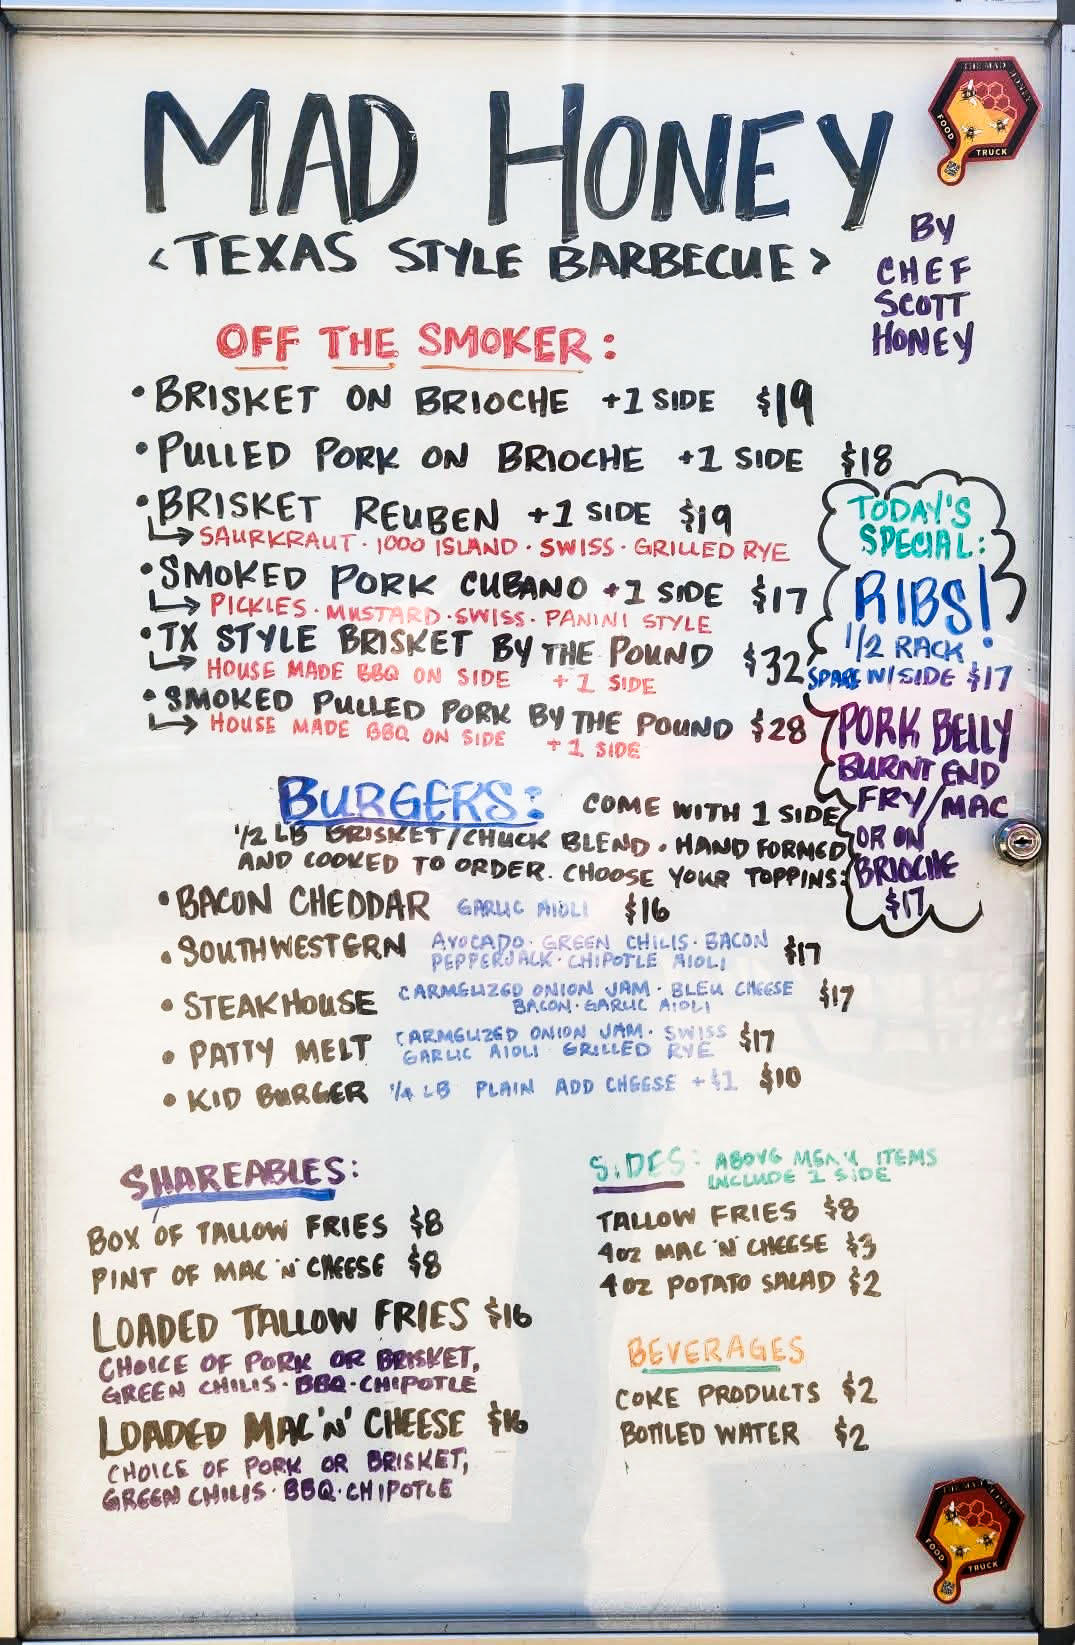 MAD HONEY
<TEXAS STYLE BARBECUE>
THE MAD HONEY
FOOD
TRUCK
BY
CHEF
SCOTT
HONEY
OFF THE SMOKER:
•BRISKET ON BRIOCHE +1 SIDE $19
•PULLED PORK ON BRIOCHE +1 SIDE $18
•BRISKET REUBEN +1 SIDE $19
SAURKRAUT · 1000 ISLAND · SWISS · GRILLED RYE
•SMOKED PORK CUBANO +1 SIDE $17
PICKLES · MUSTARD · SWISS · PANINI STYLE
•TX STYLE BRISKET BY THE POUND $32
HOUSE MADE BBQ ON SIDE +1 SIDE
•SMOKED PULLED PORK BY THE POUND $28
HOUSE MADE BBQ ON SIDE +1 SIDE
TODAY'S
SPECIAL:
RIBS!
1/2 RACK
SPARE W/SIDE $17
PORK BELLY
BURNT END
FRY/MAC
OR ON
BRIOCHE
$17
BURGERS: COME WITH 1 SIDE
1/2 LB BRISKET/CHUCK BLEND · HAND FORMED
AND COOKED TO ORDER. CHOOSE YOUR TOPPINS:
•BACON CHEDDAR GARLIC AIOLI $16
•SOUTHWESTERN AVOCADO · GREEN CHILIS · BACON $17
PEPPERJACK · CHIPOTLE AIOLI
•STEAKHOUSE CARMELIZED ONION JAM · BLEU CHEESE $17
BACON · GARLIC AIOLI
•PATTY MELT CARMELIZED ONION JAM · SWISS $17
GARLIC AIOLI · GRILLED RYE
•KID BURGER 1/4 LB PLAIN ADD CHEESE +$1 $10
SHAREABLES:
BOX OF TALLOW FRIES $8
PINT OF MAC 'N' CHEESE $8
LOADED TALLOW FRIES $16
CHOICE OF PORK OR BRISKET,
GREEN CHILIS · BBQ · CHIPOTLE
LOADED MAC 'N' CHEESE $16
CHOICE OF PORK OR BRISKET,
GREEN CHILIS · BBQ · CHIPOTLE
SIDES: ABOVE MENU ITEMS
INCLUDE 1 SIDE
TALLOW FRIES $8
4oz MAC 'N' CHEESE $3
4oz POTATO SALAD $2
BEVERAGES
COKE PRODUCTS $2
BOTTLED WATER $2
THE MAD HONEY
FOOD
TRUCK